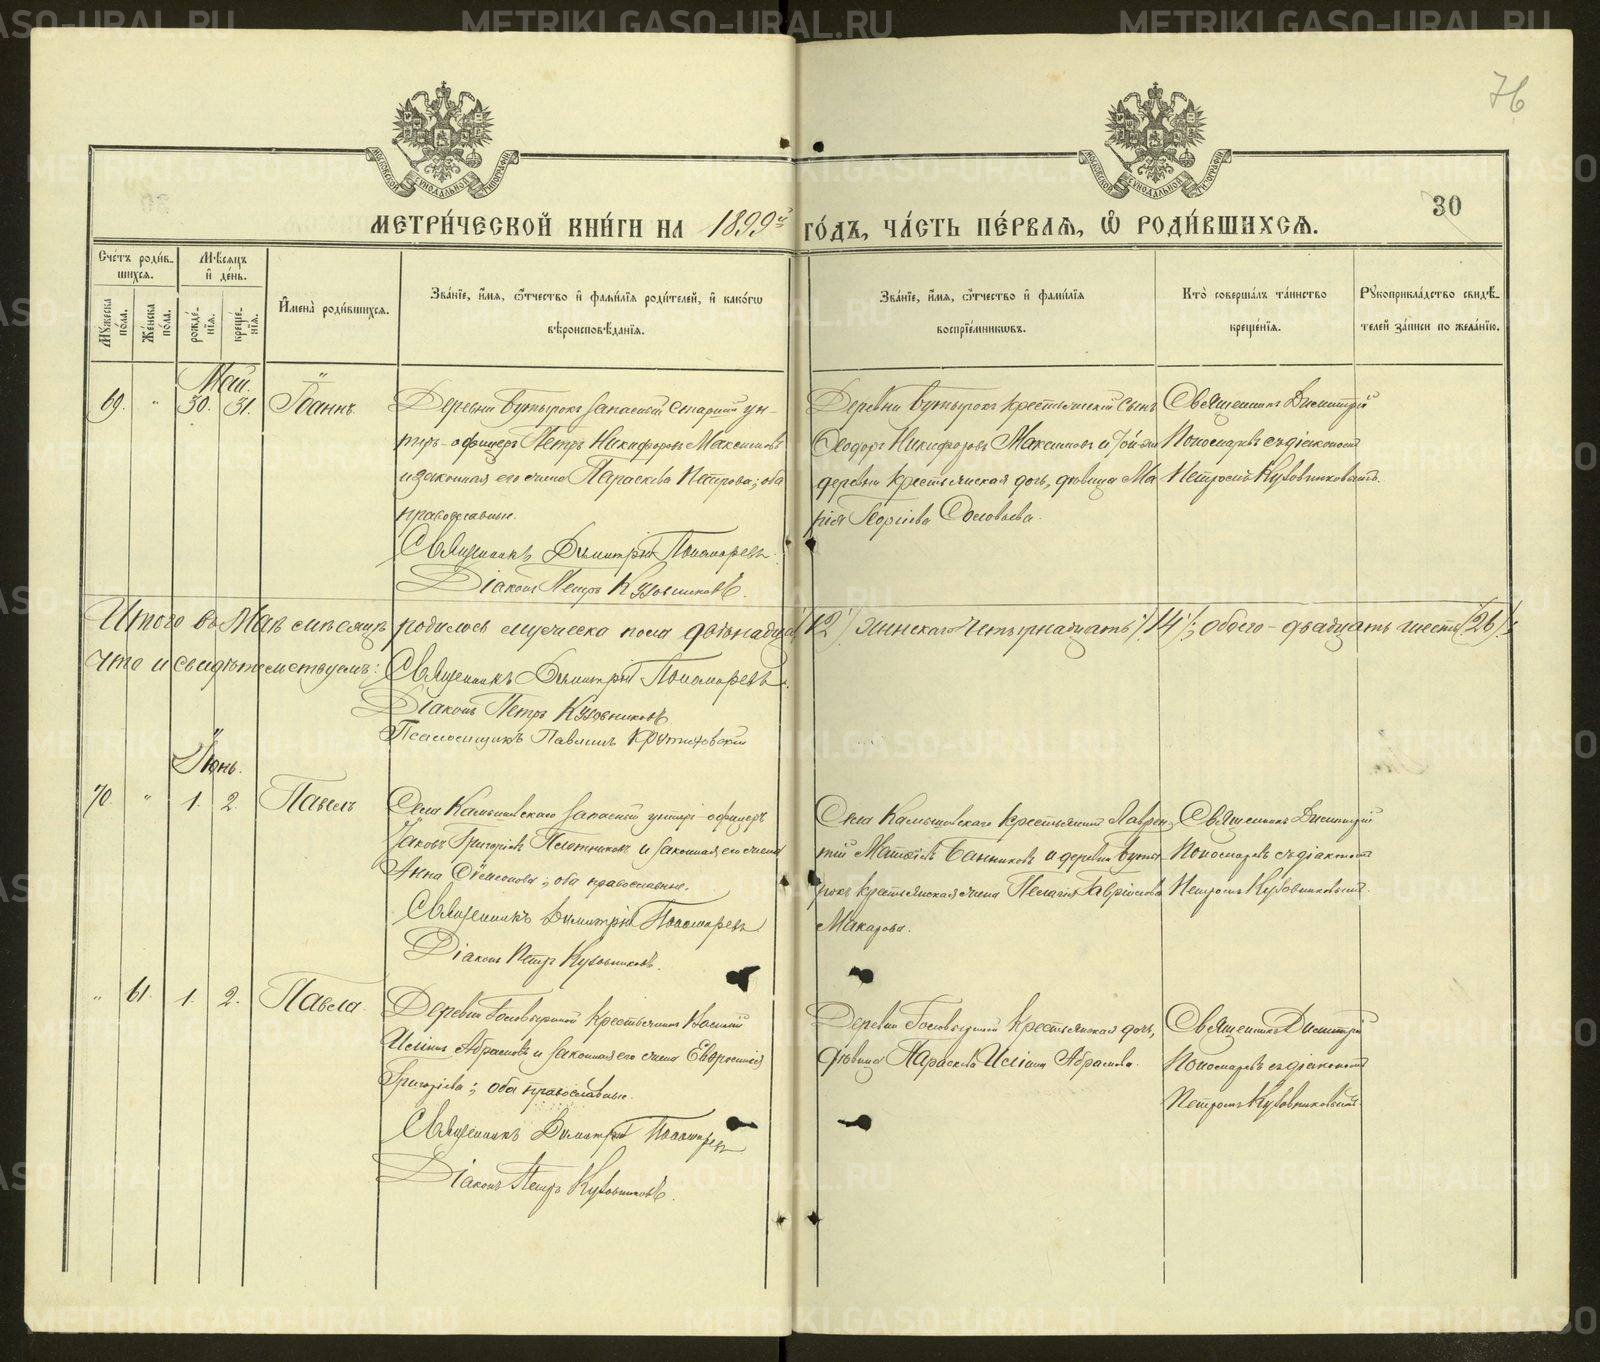 76
30
МОСКОВСКОЙ СѴНОДАЛЬНОЙ ТИПОГРАФІИ
МОСКОВСКОЙ СѴНОДАЛЬНОЙ ТИПОГРАФІИ
МЕТРИ́ЧЕСКОЙ КНИ́ГИ НА 1899й ГО́ДЪ, ЧА́СТЬ ПЕ́РВАѦ, Ѡ҆ РОДИ́ВШИХСѦ.
Сче́тъ роди́в-
шихсѧ.
Мꙋ́жеска
пола.
Же́нска
по́ла.
Мѣ́сѧцъ
и҆ де́нь.
рожде́-
нїѧ.
креще́-
нїѧ.
И҆мена̀ роди́вшихсѧ.
Зва́нїе, и҆́мѧ, ѻ҆́тчество и҆ фами́лїѧ роди́телей, и҆ како́гѡ
вѣроисповѣ́данїѧ.
Зва́нїе, и҆́мѧ, ѻ҆́тчество и҆ фами́лїѧ
воспрїе́мникѡвъ.
Кто̀ соверша́лъ та́инство
креще́нїѧ.
Рꙋкоприкла́дство свидѣ́-
телей за́писи по жела́нїю.
Май.
69. " 30. 31. Іоаннъ.
Деревни Бутырокъ запасный старшій ун-
теръ-офицеръ Петръ Никифоровъ Максимовъ
и законная его жена Параскева Петрова; оба
православные.
Священникъ Димитрій Пономаревъ.
Діаконъ Петръ Кузовниковъ.
Деревни Бутырокъ крестьянскій сынъ
Ѳеодоръ Никифоровъ Максимовъ и той-же
деревни крестьянская дочь, дѣвица Ма
рія Георгіева Соловьева.
Священникъ Димитрій
Пономаревъ съ діакономъ
Петромъ Кузовниковымъ.
Итого въ Маѣ мѣсяцѣ родилось мужеска пола двѣнадцать (12) женскаго четырнадцать (14); обоего - двадцать шесть (26);
Что и свидѣтельствуемъ: Священникъ Димитрій Пономаревъ.
Діаконъ Петръ Кузовниковъ
Псаломщикъ Павлинъ
Іюнь.
70. " 1. 2. Павелъ
Села Камышевскаго запасный унтеръ-офицеръ
Іаковъ Григоріевъ Плотниковъ и законная его жена
Анна Сѵмеонова; оба православные.
Священникъ Димитрій Пономаревъ
Діаконъ Петръ Кузовниковъ.
Села Камышевскаго крестьянинъ Лаврен
тій Матѳіевъ Банниковъ и деревни Буты-
рокъ крестьянская жена Пелагія Гавріилова
Макарова.
Священникъ Димитрій
Пономаревъ съ діакономъ
Петромъ Кузовниковымъ.
" 61. 1. 2. Павла.
Деревни Головыриной крестьянинъ Василій
Иліинъ Абрамовъ и законная его жена Евгенія
Григоріева; оба православные.
Священникъ Димитрій Пономаревъ
Діаконъ Петръ Кузовниковъ.
Деревни Головыриной крестьянская дочь,
дѣвица Параскева Иліина Абрамова.
Священникъ Димитрій
Пономаревъ съ діакономъ
Петромъ Кузовниковымъ.
METRIKI.GASO-URAL.RU